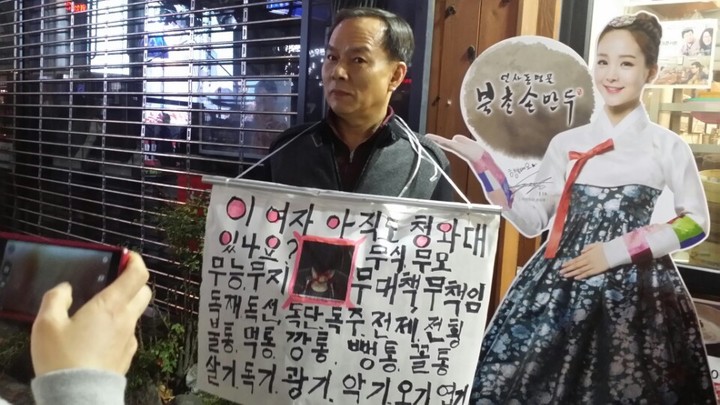 이 여자 아직도 청와대
있나요? 무식, 무모
무능, 무지 무대책, 무책임
독재, 독선, 독단, 독주, 전제, 전횡
불통, 먹통, 깡통, 뻥통, 꼴통
살기, 독기, 광기, 악기, 오기, 연기
인사동명물
북촌손만두